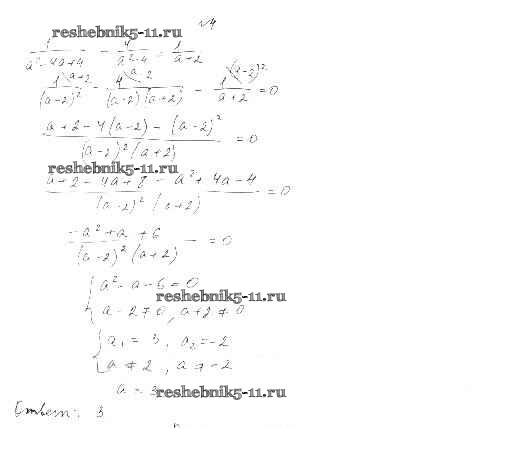 reshebnik5-11.ru
№4
1/(a²-4a+4) - 4/(a²-4) = 1/(a+2)
1\a+2/(a-2)² - 4\a-2/((a-2)(a+2)) - 1\(a-2)²/(a+2) = 0
(a+2-4(a-2)-(a-2)²)/((a-2)²(a+2)) = 0
reshebnik5-11.ru
(a+2-4a+8-a²+4a-4)/((a-2)²(a+2)) = 0
(-a²+a+6)/((a-2)²(a+2)) = 0
{ a²-a-6=0
reshebnik5-11.ru
a-2≠0, a+2≠0
{ a₁=3, a₂=-2
a≠2, a≠-2
a = 3
reshebnik5-11.ru
Ответ: 3